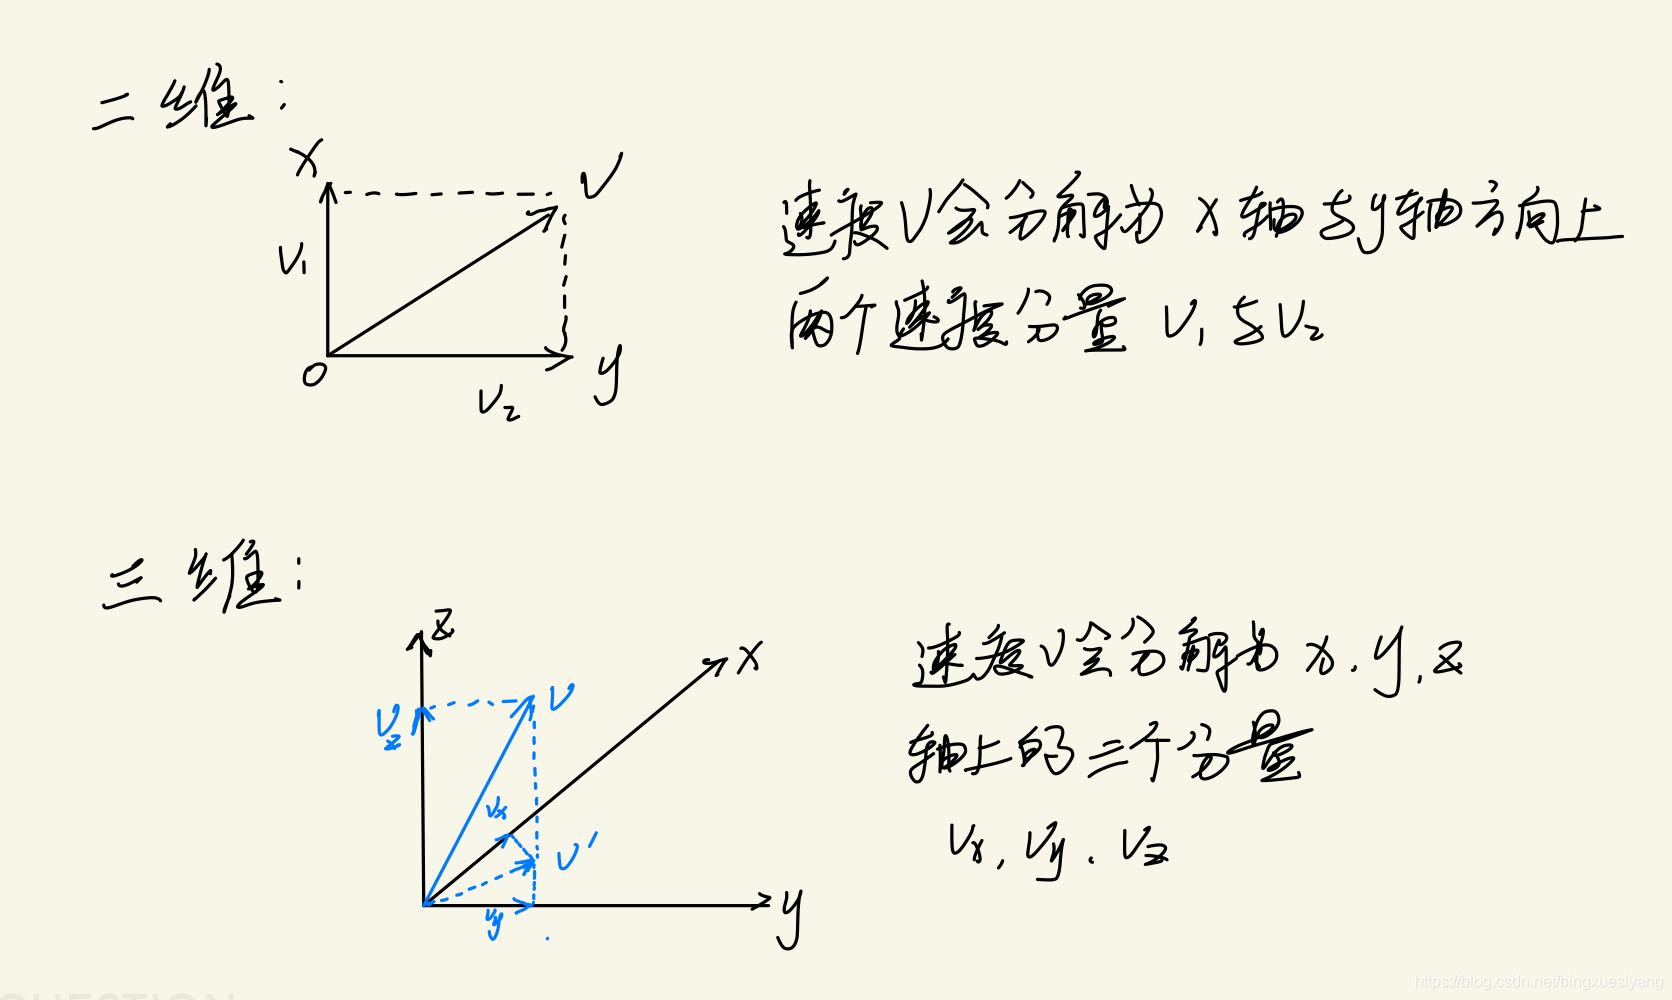 二维：
x
V
V₁
O
V₂
y
速度V会分解为 x轴与y轴方向上
两个速度分量 V₁与V₂
三维：
z
x
V
Vz
Vx
V'
Vy
y
速度V会分解为 x.y,z
轴上的三个分量
Vx, Vy. Vz
https://blog.csdn.net/bingxuesiyang